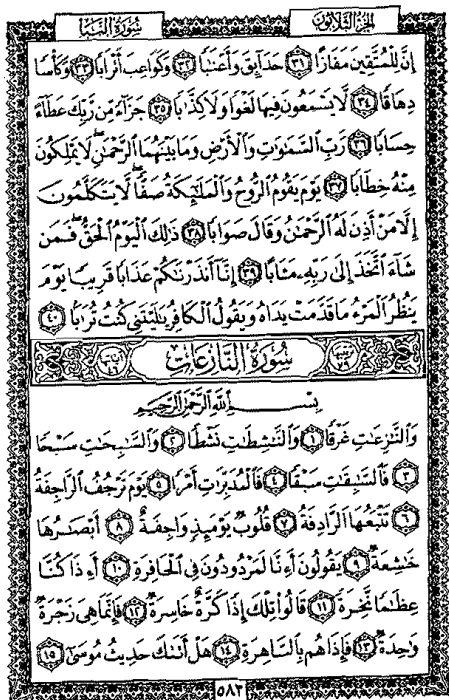 سُورَةُ النَّبَإِ
الجُزءُ الثَّلَاثُونَ
إِنَّ لِلْمُتَّقِينَ مَفَازًا ٣١ حَدَآئِقَ وَأَعْنَٰبًا ٣٢ وَكَوَاعِبَ أَتْرَابًا ٣٣ وَكَأْسًا
دِهَاقًا ٣٤ لَّا يَسْمَعُونَ فِيهَا لَغْوًا وَلَا كِذَّٰبًا ٣٥ جَزَآءً مِّن رَّبِّكَ عَطَآءً
حِسَابًا ٣٦ رَّبِّ ٱلسَّمَٰوَٰتِ وَٱلْأَرْضِ وَمَا بَيْنَهُمَا ٱلرَّحْمَٰنِ لَا يَمْلِكُونَ
مِنْهُ خِطَابًا ٣٧ يَوْمَ يَقُومُ ٱلرُّوحُ وَٱلْمَلَٰٓئِكَةُ صَفًّا لَّا يَتَكَلَّمُونَ
إِلَّا مَنْ أَذِنَ لَهُ ٱلرَّحْمَٰنُ وَقَالَ صَوَابًا ٣٨ ذَٰلِكَ ٱلْيَوْمُ ٱلْحَقُّ فَمَن
شَآءَ ٱتَّخَذَ إِلَىٰ رَبِّهِۦ مَـَٔابًا ٣٩ إِنَّآ أَنذَرْنَٰكُمْ عَذَابًا قَرِيبًا يَوْمَ
يَنظُرُ ٱلْمَرْءُ مَا قَدَّمَتْ يَدَاهُ وَيَقُولُ ٱلْكَافِرُ يَٰلَيْتَنِي كُنتُ تُرَٰبًۢا ٤٠
سُورَةُ النَّازِعَاتِ
بِسْمِ ٱللَّهِ ٱلرَّحْمَٰنِ ٱلرَّحِيمِ
وَٱلنَّٰزِعَٰتِ غَرْقًا ١ وَٱلنَّٰشِطَٰتِ نَشْطًا ٢ وَٱلسَّٰبِحَٰتِ سَبْحًا
٣ فَٱلسَّٰبِقَٰتِ سَبْقًا ٤ فَٱلْمُدَبِّرَٰتِ أَمْرًا ٥ يَوْمَ تَرْجُفُ ٱلرَّاجِفَةُ
٦ تَتْبَعُهَا ٱلرَّادِفَةُ ٧ قُلُوبٌ يَوْمَئِذٍ وَاجِفَةٌ ٨ أَبْصَٰرُهَا
خَٰشِعَةٌ ٩ يَقُولُونَ أَءِنَّا لَمَرْدُودُونَ فِي ٱلْحَافِرَةِ ١٠ أَءِذَا كُنَّا
عِظَٰمًا نَّخِرَةً ١١ قَالُوا۟ تِلْكَ إِذًا كَرَّةٌ خَاسِرَةٌ ١٢ فَإِنَّمَا هِيَ زَجْرَةٌ
وَٰحِدَةٌ ١٣ فَإِذَا هُم بِٱلسَّاهِرَةِ ١٤ هَلْ أَتَىٰكَ حَدِيثُ مُوسَىٰٓ ١٥
٥٨٣